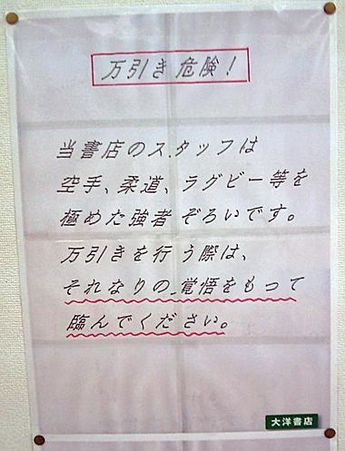 万引き危険！
当書店のスタッフは
空手、柔道、ラグビー等を
極めた強者ぞろいです。
万引きを行う際は、
それなりの覚悟をもって
臨んでください。
大洋書店